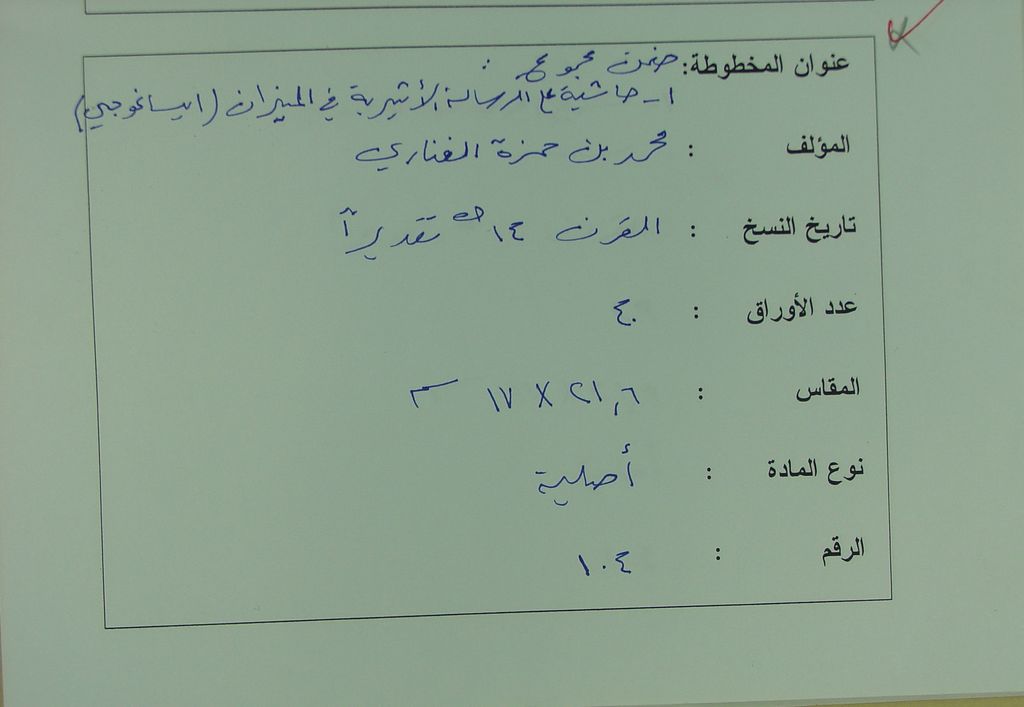 عنوان المخطوطة: ضمن مجموع :
١ - حاشية على الرسالة الأثيرية في الميزان (ايساغوجي)
المؤلف : محمد بن حمزة الفناري
تاريخ النسخ : القرن ١٤ هـ تقديراً
عدد الأوراق : ٤٠
المقاس : ٢١,٦ X ١٧ سم
نوع المادة : أصلية
الرقم : ١٠٤